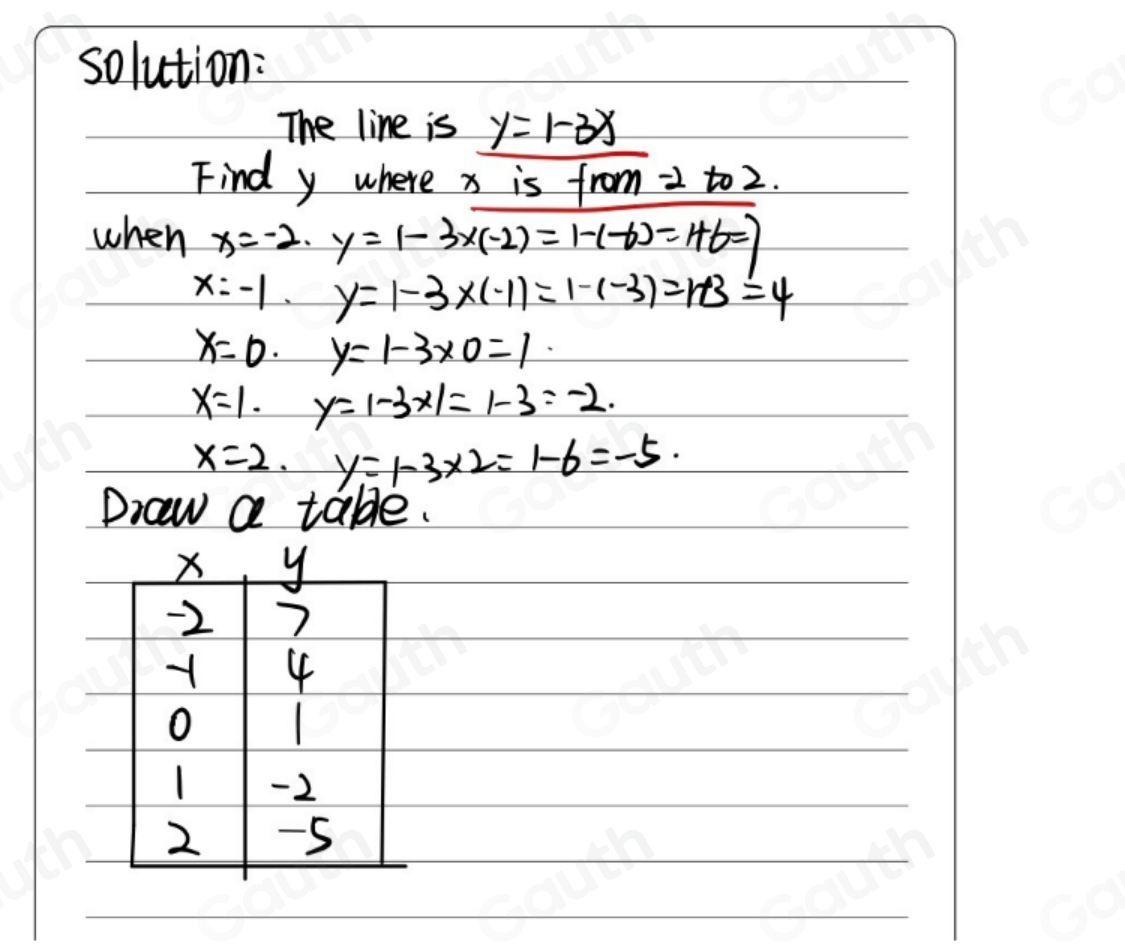 Solution:
The line is y=1-3x
Find y where x is from -2 to 2.
when x=-2. y=1-3×(-2)=1-(-6)=1+6=7
x=-1. y=1-3×(-1)=1-(-3)=1+3=4
x=0. y=1-3×0=1.
x=1. y=1-3×1=1-3=-2.
x=2. y=1-3×2=1-6=-5.
Draw a table.
x y
-2 7
-1 4
0 1
1 -2
2 -5
Gauth